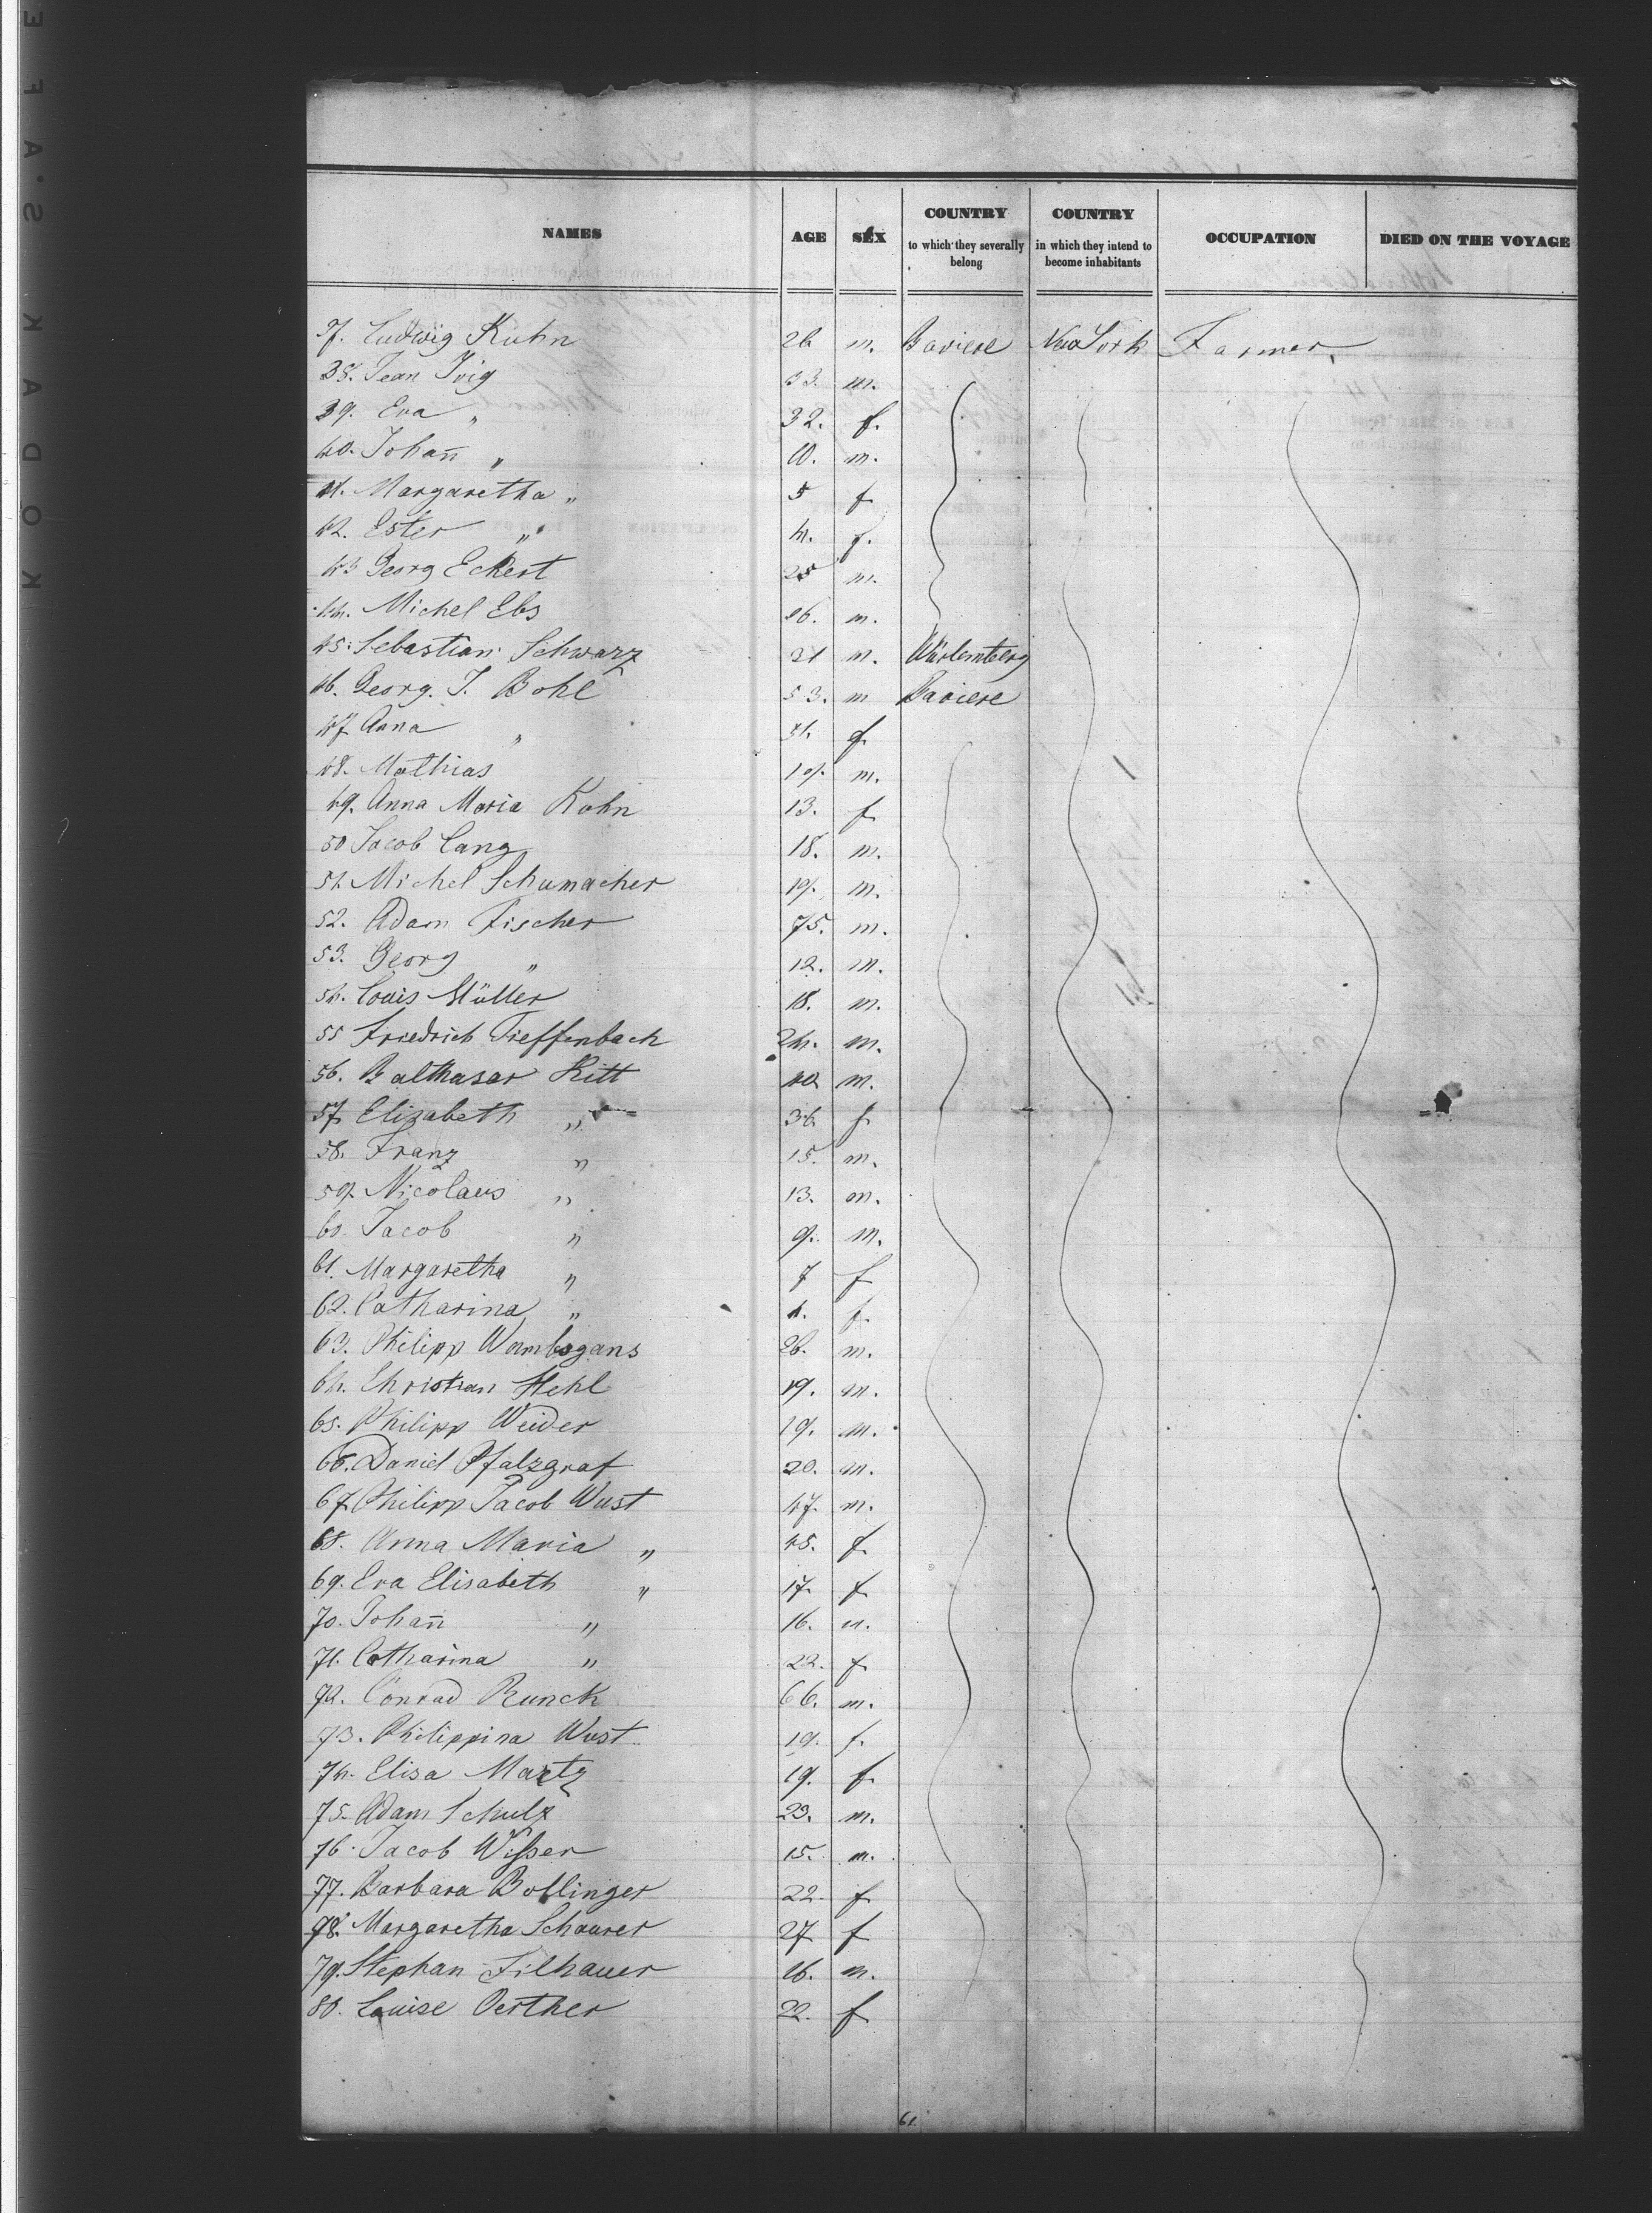 NAMES AGE SEX COUNTRY to which they severally belong COUNTRY in which they intend to become inhabitants OCCUPATION DIED ON THE VOYAGE
37. Ludwig Kuhn 26 m. Baviere New York Farmer
38. Jean Ivig 33. m.
39. Eva " 32. f.
40. Johan̄ " 10. m.
41. Margaretha " 5 f
42. Ester " 4. f.
43 Georg Eckert 25 m.
44. Michel Ebs 26. m.
45. Sebastian Schwarz 21 m. Würtemberg
46. Georg. J. Bohl 53. m Baviere
47 Anna " 51. f.
48. Mathias 19. m.
49. Anna Maria Kohn 13. f
50 Jacob Lang 18. m.
51. Michel Schumacher 19. m.
52. Adam Fischer 75. m.
53. Georg " 12. m.
54. Louis Müller 18. m.
55 Friedrich Tieffenbach 24. m.
56. Balthasar Ritt 40 m.
57 Elizabeth " 36 f
58. Franz " 15. m.
59. Nicolaus " 13. m.
60. Jacob " 9. m.
61. Margaretha " 7 f
62. Catharina " f.
63. Philipp Wambsgans 26. m.
64. Christian Hehl 19. m.
65. Philipp Weider 19. m.
66. Daniel Pfalzgraf 20. m.
67 Philipp Jacob Wust 47. m.
68. Anna Maria " 45. f.
69. Eva Elisabeth " 17. f
70. Johan̄ " 16. m.
71. Catharina " 22. f
72. Conrad Runck 66. m.
73. Philippina Wust 19. f.
74. Elisa Martz 19. f.
75. Adam Schulz 23. m.
76. Jacob Wisser 15. m.
77. Barbara Bollinger 22. f
78. Margaretha Schaurer 27 f
79. Stephan Filhauer 26. m.
80. Louise Oerther 22. f
61.
KODAK S.A.F.E